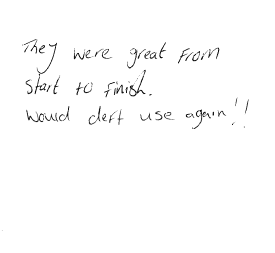 They were great from
Start to finish.
Would deft use again!!